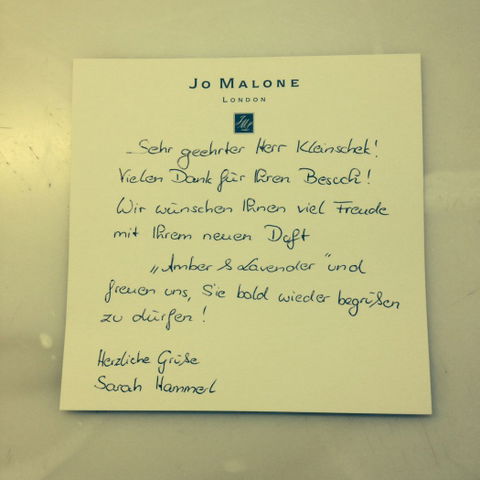 JO MALONE
LONDON
Sehr geehrter Herr Kleinschek!
Vielen Dank für Ihren Besuch!
Wir wünschen Ihnen viel Freude
mit Ihrem neuen Duft
„Amber & Lavender" und
freuen uns, Sie bald wieder begrüßen
zu dürfen!
Herzliche Grüße
Sarah Hammerl